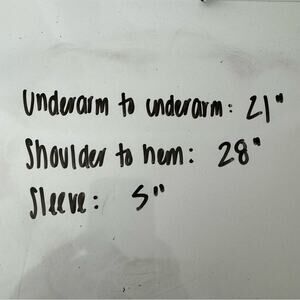 Underarm to underarm: 21"
Shoulder to hem: 28"
Sleeve: 5"